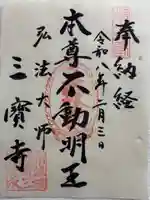 奉納経
令和八年二月三日
本尊不動明王
弘法大師
三寳寺